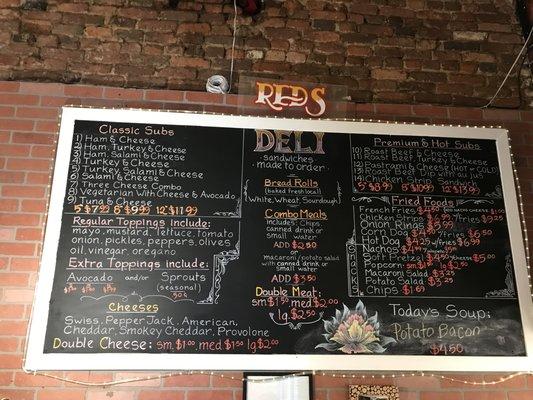 REDS
DELI
sandwiches
made to order
Classic Subs
1) Ham & Cheese
2) Ham, Turkey & Cheese
3) Ham, Salami & Cheese
4) Turkey & Cheese
5) Turkey, Salami & Cheese
6) Salami & Cheese
7) Three Cheese Combo
8) Vegetarian with Cheese & Avocado
9) Tuna & Cheese
5" $7.99 8" $9.99 12" $11.99
Regular Toppings Include:
mayo, mustard, lettuce, tomato
onion, pickles, peppers, olives
oil, vinegar, oregano
Extra Toppings include:
Avocado and/or Sprouts
(seasonal)
50¢
Cheeses
Swiss, Pepper Jack, American,
Cheddar, Smokey Cheddar, Provolone
Double Cheese: sm. $1.00 med $1.50 lg. $2.00
Bread Rolls
(baked fresh local)
White, Wheat, Sourdough
Combo Meals
includes: Chips
canned drink or
small water
ADD $2.50
or
macaroni/potato salad
with canned drink or
small water
ADD $3.50
Double Meat:
sm $1.50 med $2.00
lg. $2.50
Premium & Hot Subs
10) Roast Beef & Cheese
11) Roast Beef, Turkey & Cheese
12) Pastrami & Cheese (HOT or COLD)
13) Chicken Strip & Cheese
5" $8.99 8" $10.99 12" $13.99
Fried Foods
SNACKS
French Fries
Chicken Strips
Onion Rings
Corn Dog
Hot Dog
Nachos
Soft Pretzel
Popcorn
Macaroni Salad $3.25
Potato Salad $3.25
Chips $1.69
Today's Soup:
Potato Bacon
$4.50